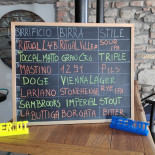 BIRRIFICIO BIRRA STILE
RITUAL LAB RITUAL PILS
TOCCALMATTO GRAN CRU TRIPLE
MASTINO 1291 PILS
DOGE VIENNA LAGER
LARIANO STONEHENGE RYE IPA
SAMBROOKS IMPERIAL STOUT
LA BUTTIGA BORGATA BITTER